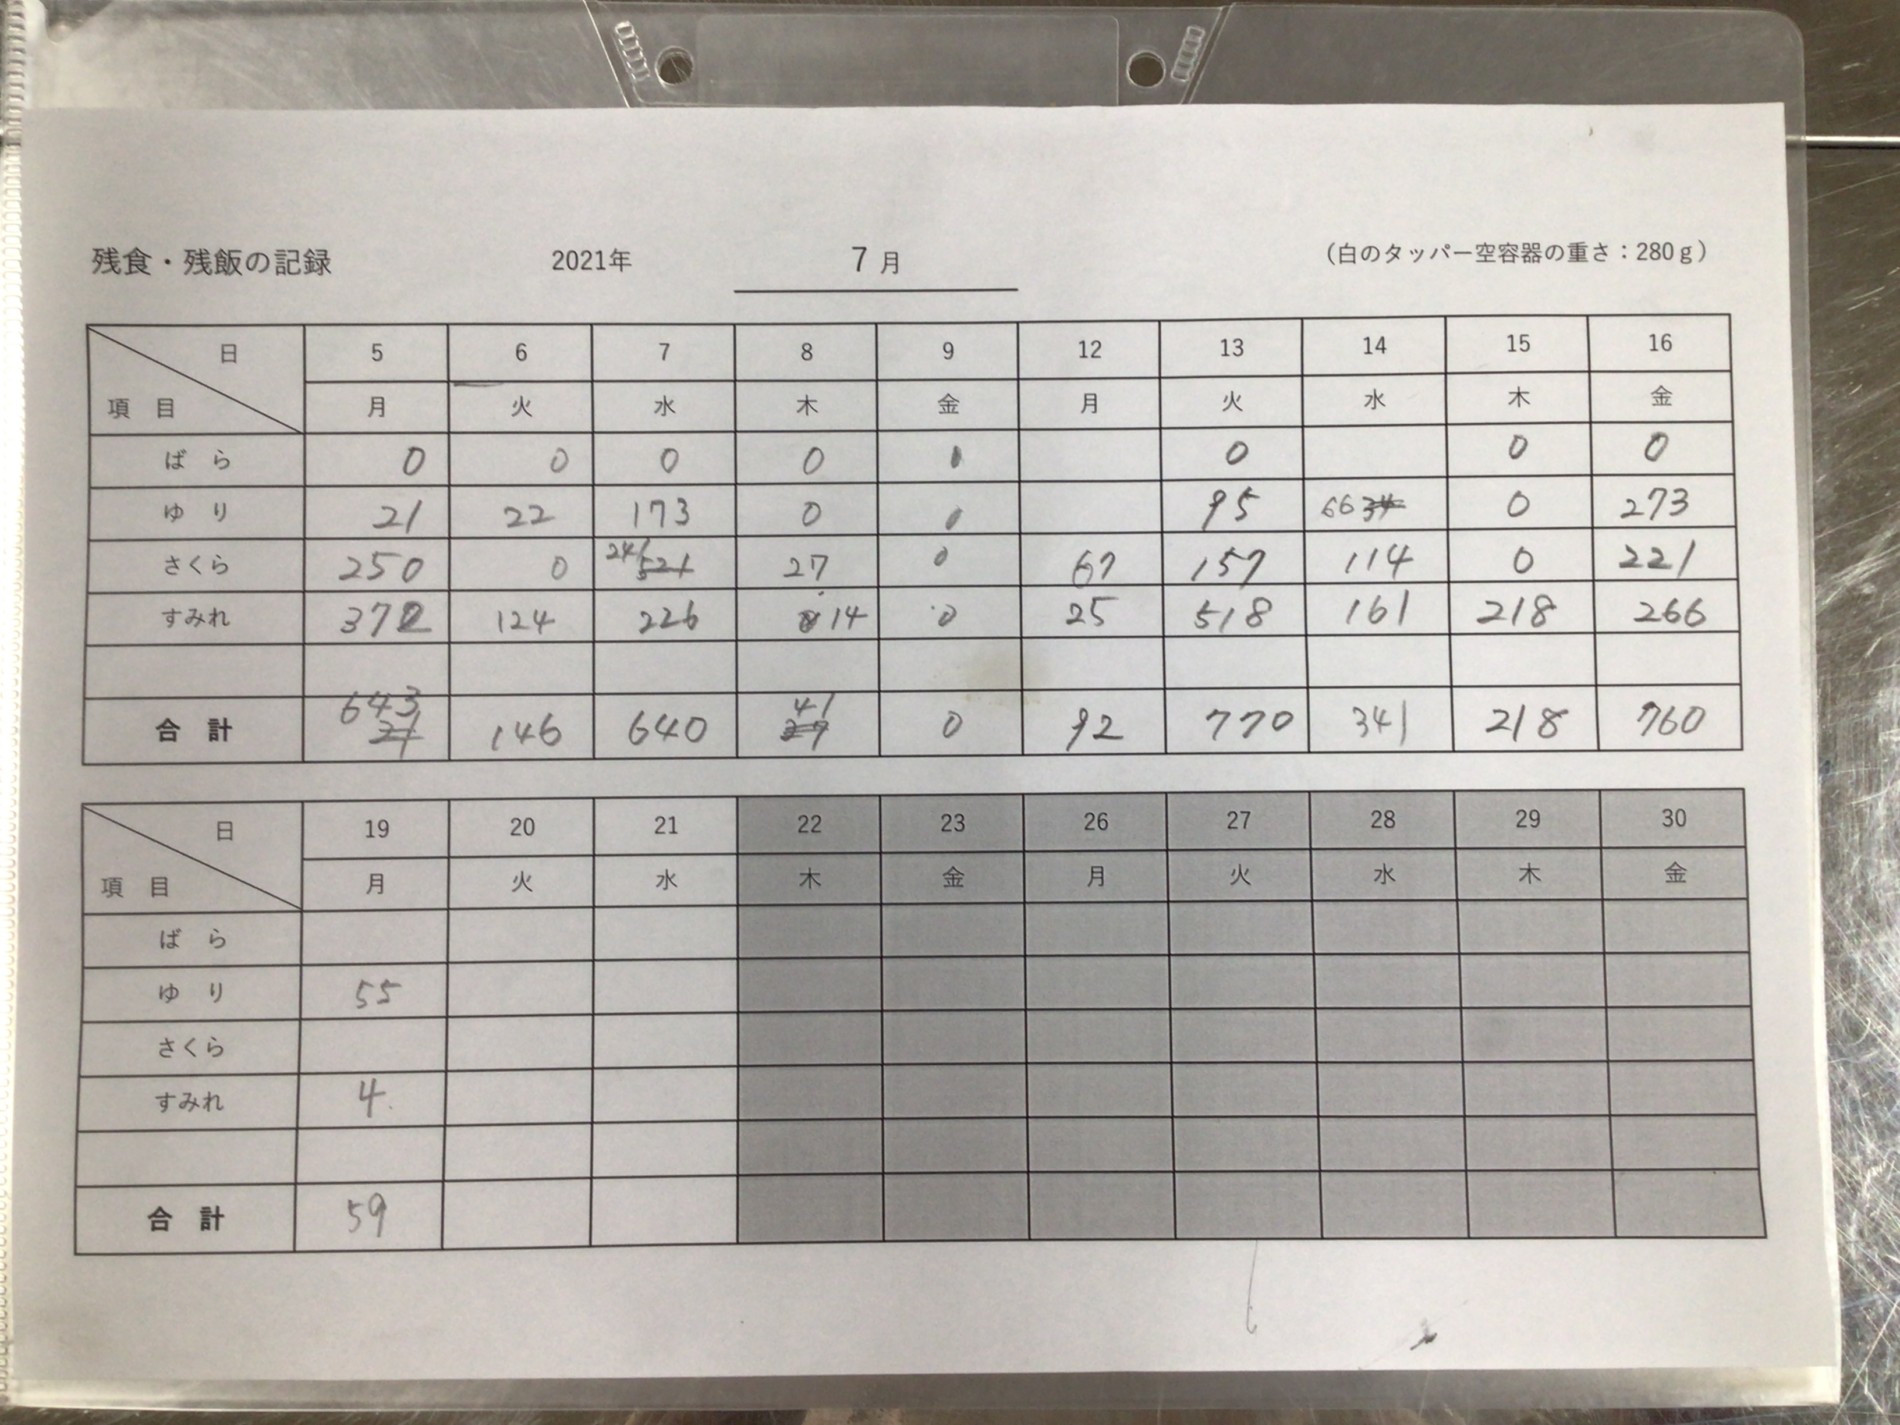 残食・残飯の記録 2021年 7月 (白のタッパー空容器の重さ：280g)
日 5 6 7 8 9 12 13 14 15 16
項 目 月 火 水 木 金 月 火 水 木 金
ば ら 0 0 0 0 0 0 0 0
ゆ り 21 22 173 0 0 95 66 0 273
さくら 250 0 241 27 0 67 157 114 0 221
すみれ 372 124 226 14 0 25 518 161 218 266
合 計 643 146 640 41 0 92 770 341 218 760
日 19 20 21 22 23 26 27 28 29 30
項 目 月 火 水 木 金 月 火 水 木 金
ば ら
ゆ り 55
さくら
すみれ 4
合 計 59